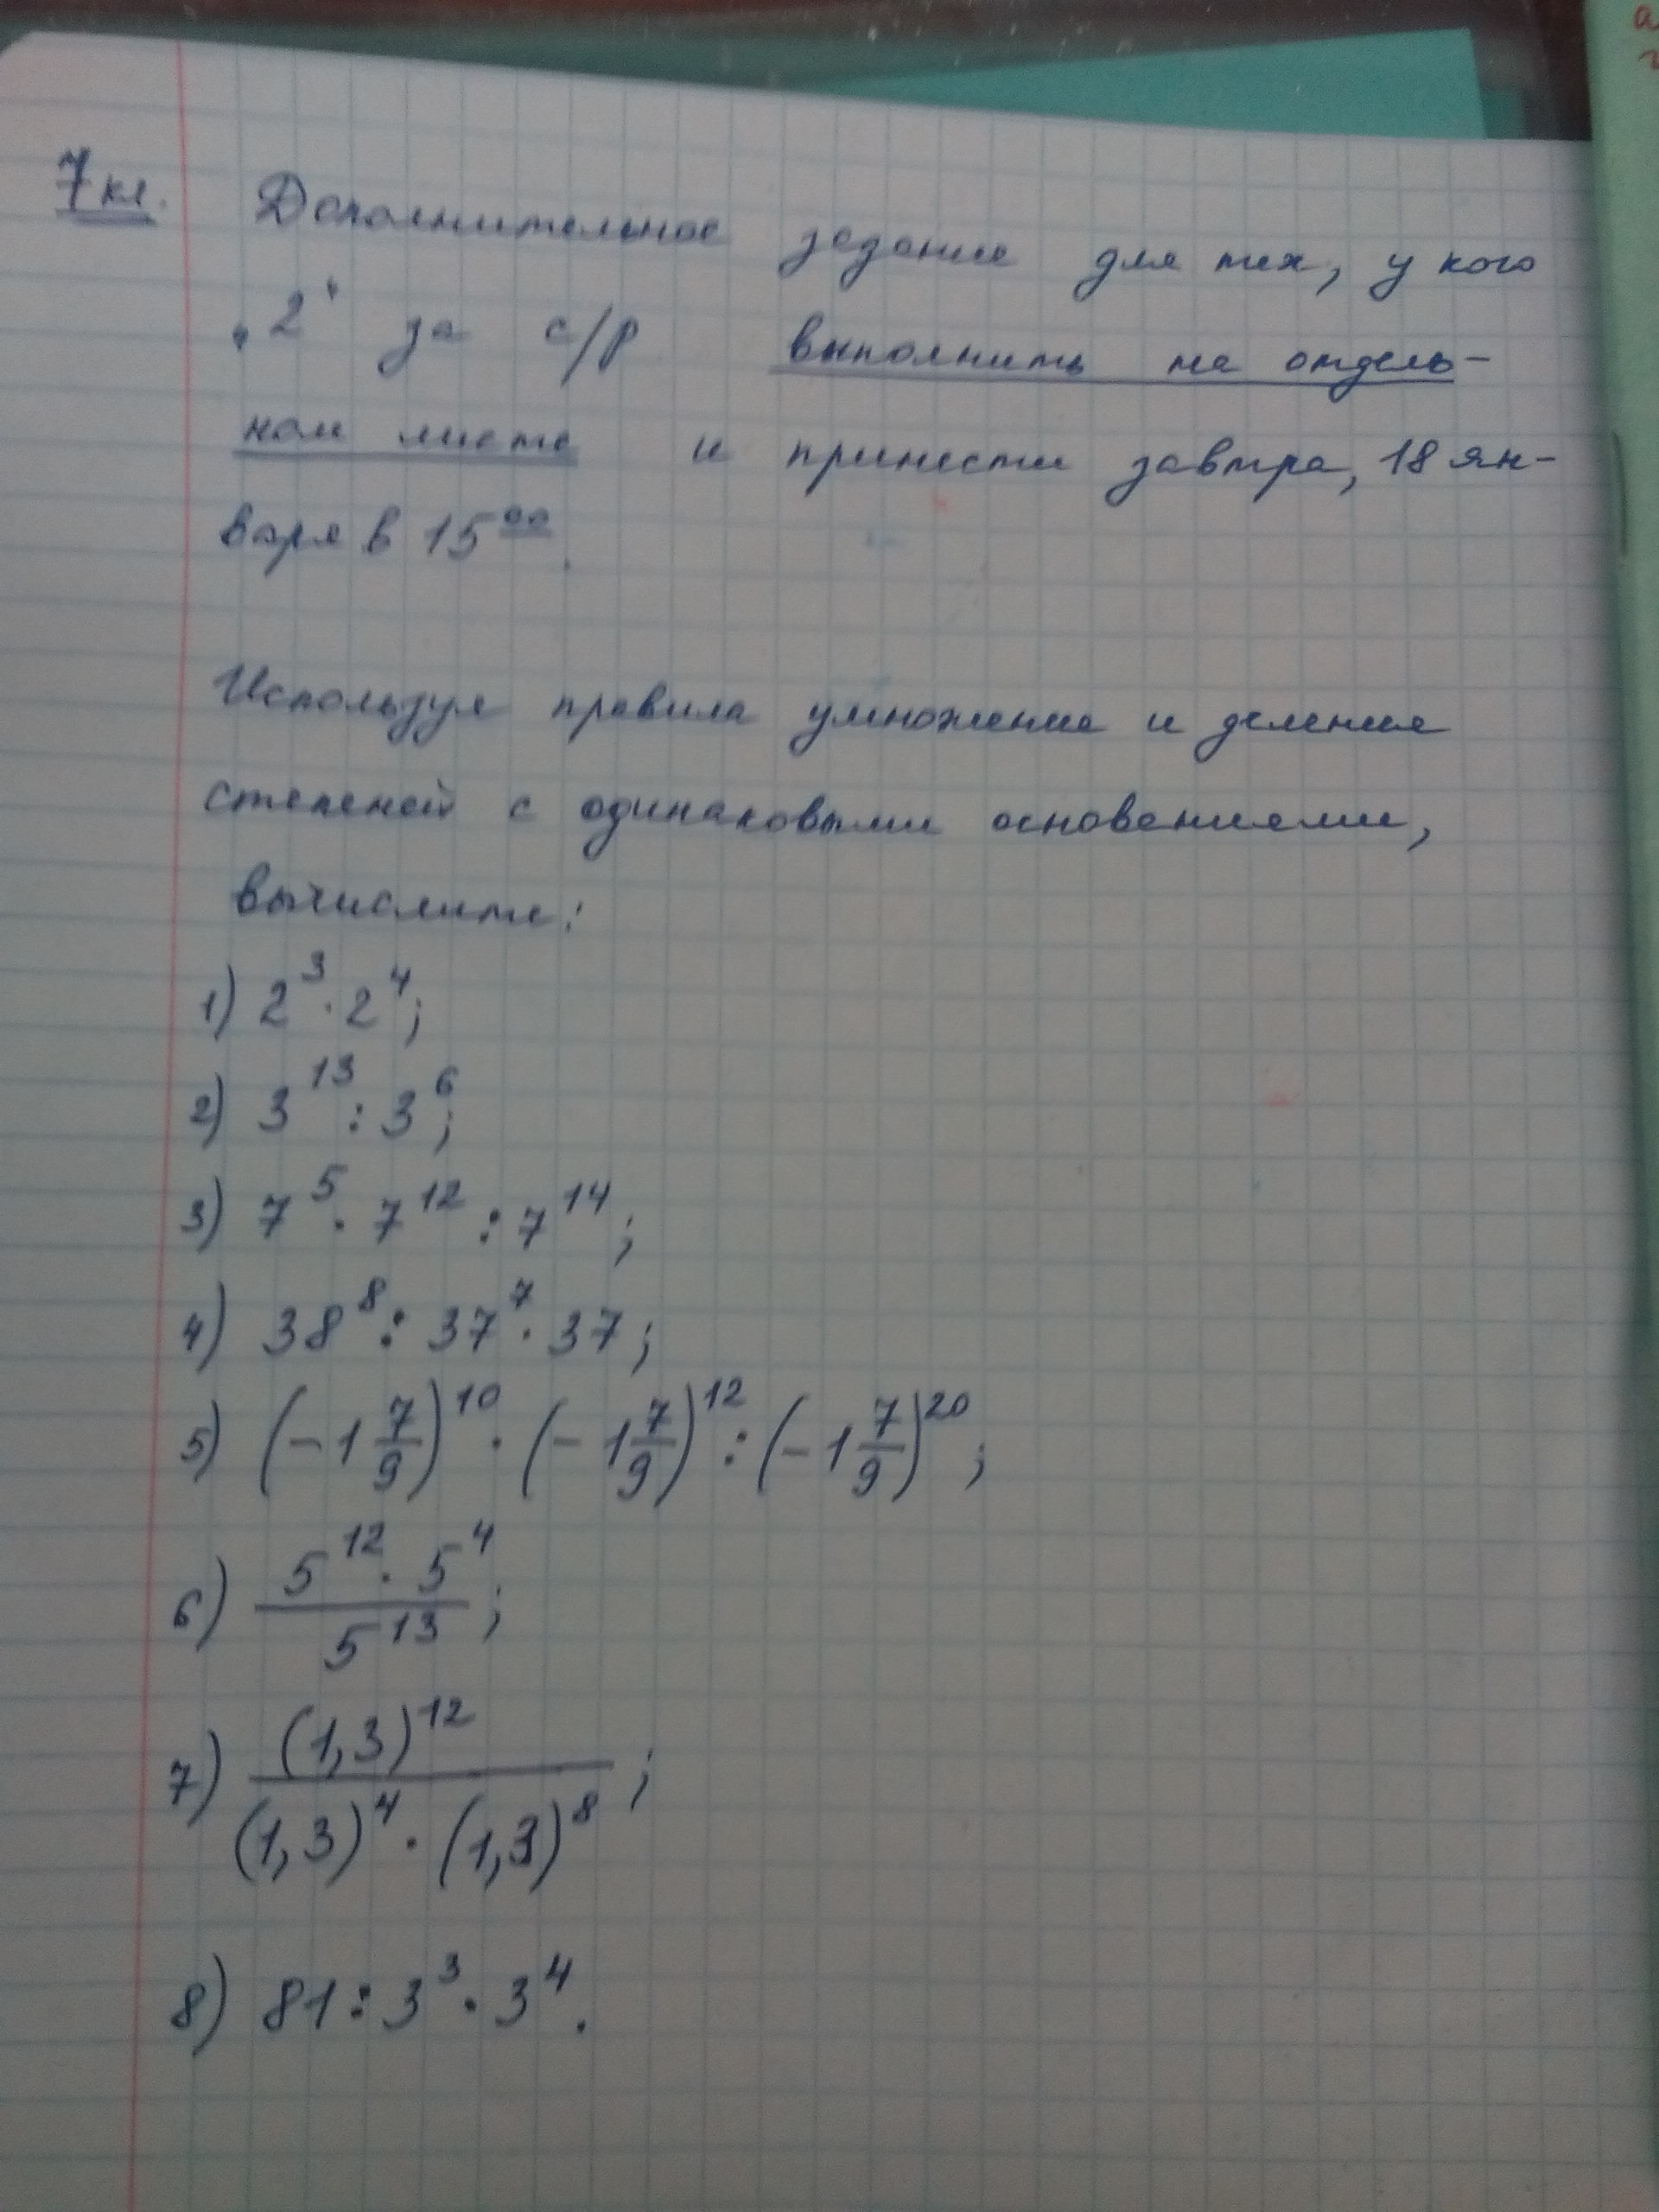 7 кл. Дополнительное задание для тех, у кого
„2“ за с/р выполнить на отдель-
ном листе и принести завтра, 18 ян-
варя в 15⁰⁰.
Используя правила умножение и деления
степеней с одинаковыми основаниями,
вычислите:
1) 2³ · 2⁴;
2) 3¹³ : 3⁶;
3) 7⁵ · 7¹² : 7¹⁴;
4) 38⁸ : 37⁷ · 37;
5) (-1 7/9)¹⁰ · (-1 7/9)¹² : (-1 7/9)²⁰;
6) 5¹² · 5⁴ / 5¹³;
7) (1,3)¹² / (1,3)⁴ · (1,3)⁸;
8) 81 : 3³ · 3⁴.